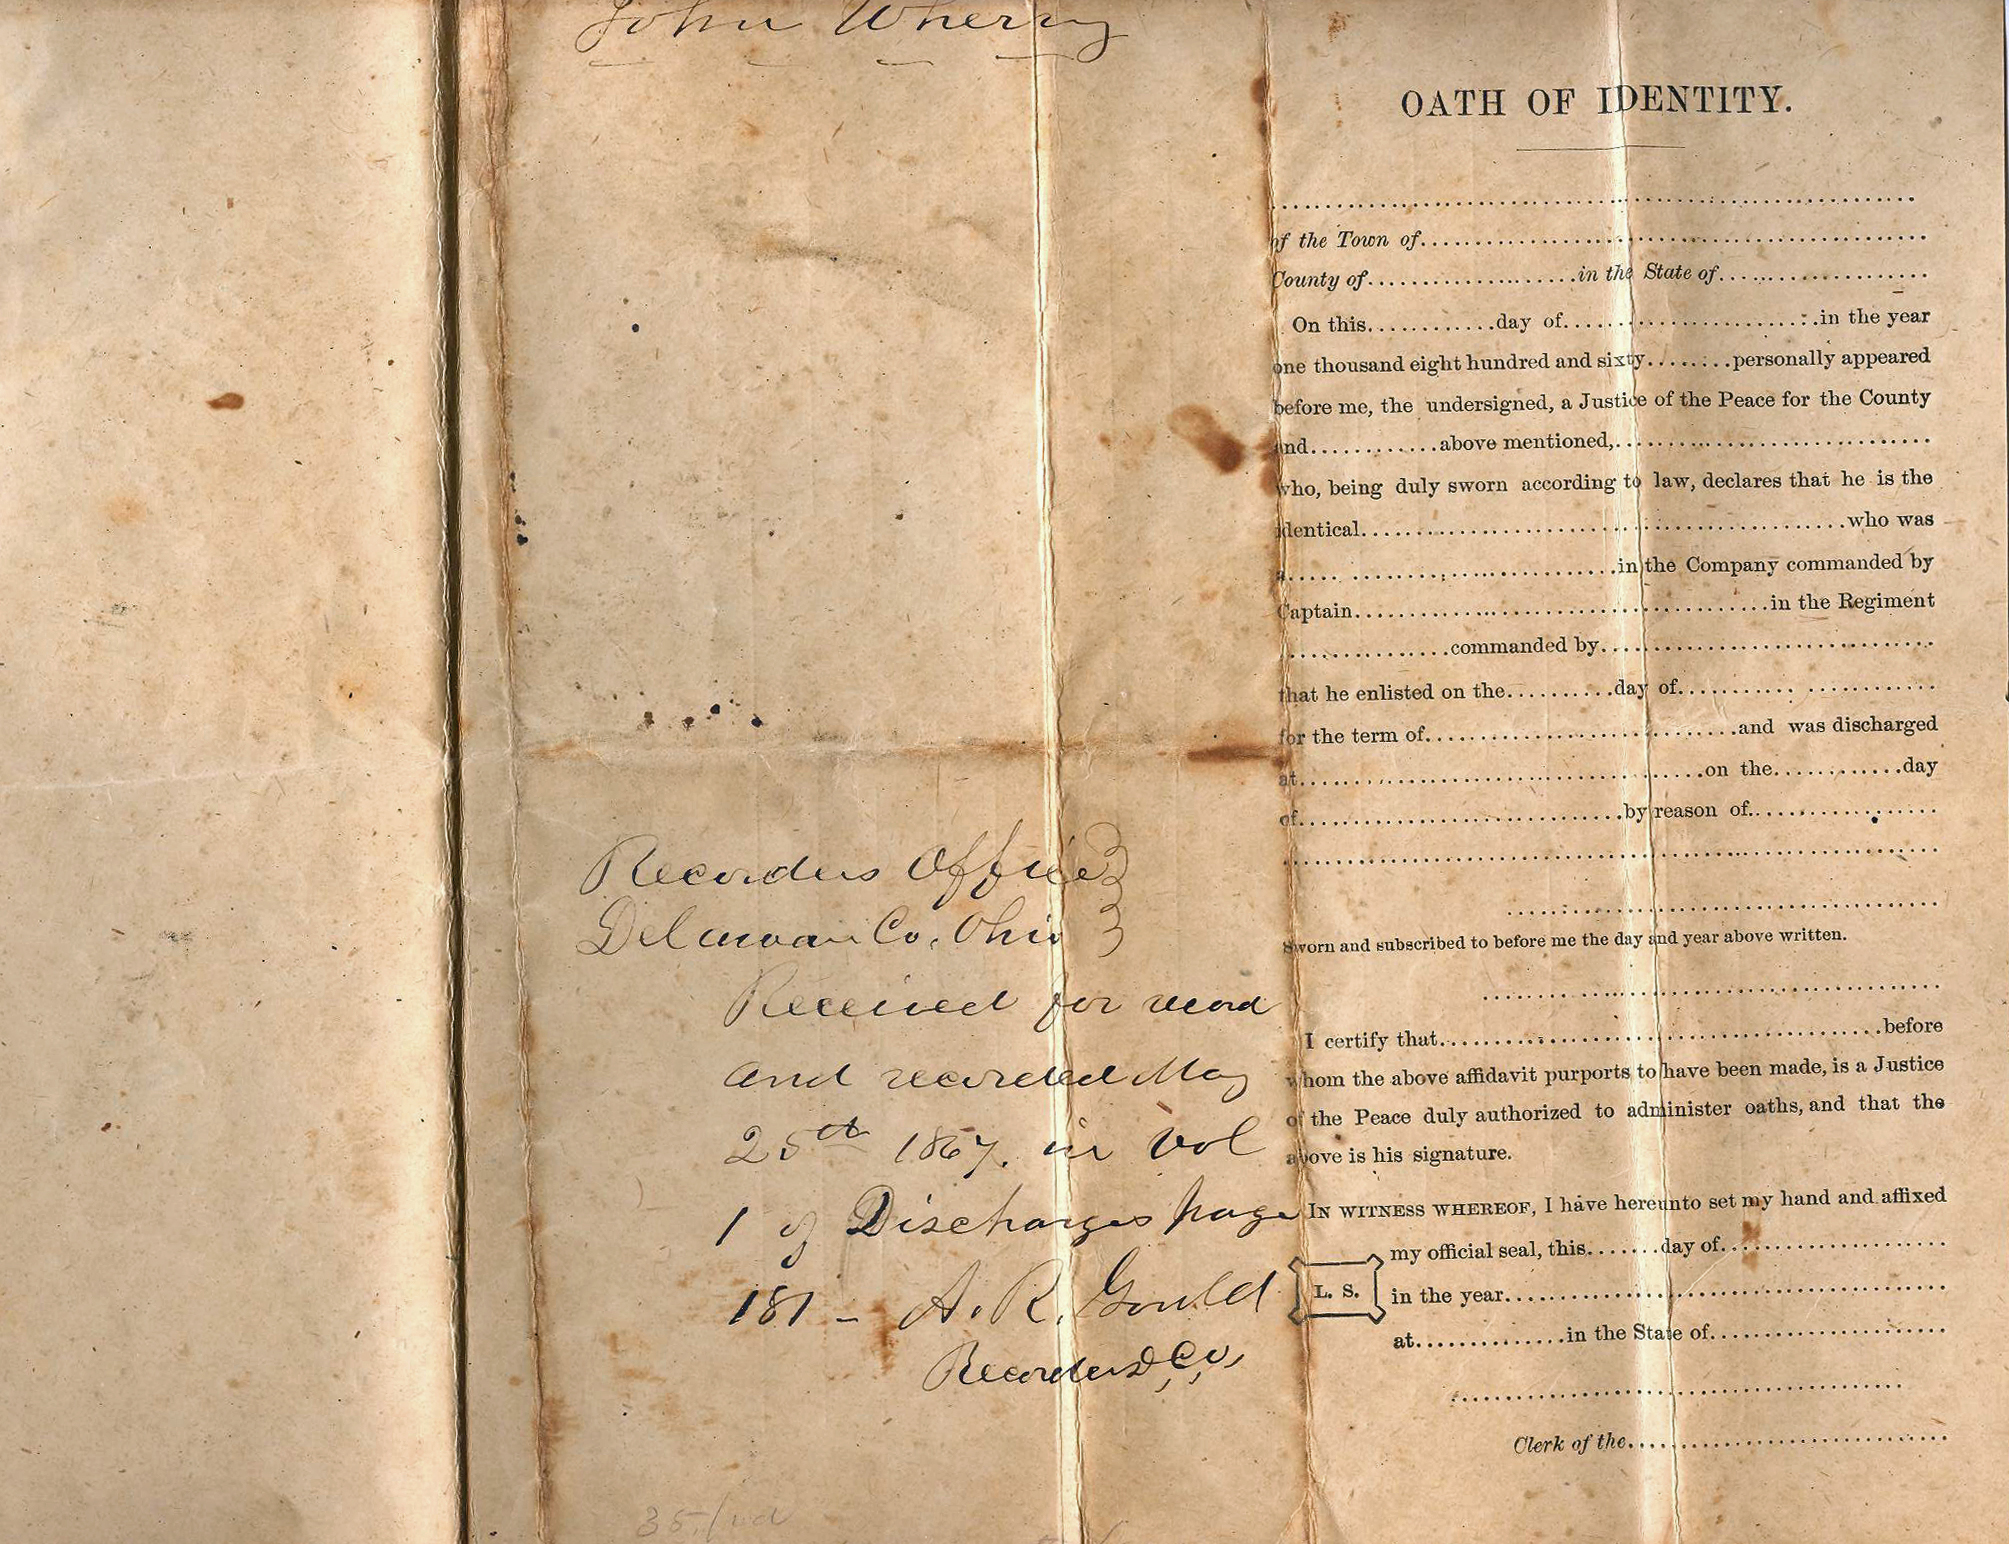 John Wherry
Recorders Office
Delaware Co. Ohio
Received for record
and recorded May
25th 1867. in Vol
1 of Discharges page
181 - A. R. Gould
Recorder D. Co,
OATH OF IDENTITY.
of the Town of
County of in the State of
On this day of in the year
one thousand eight hundred and sixty personally appeared
before me, the undersigned, a Justice of the Peace for the County
and above mentioned,
who, being duly sworn according to law, declares that he is the
identical who was
a in the Company commanded by
Captain in the Regiment
commanded by
that he enlisted on the day of
for the term of and was discharged
at on the day
of by reason of
Sworn and subscribed to before me the day and year above written.
I certify that before
whom the above affidavit purports to have been made, is a Justice
of the Peace duly authorized to administer oaths, and that the
above is his signature.
IN WITNESS WHEREOF, I have hereunto set my hand and affixed
my official seal, this day of
L. S. in the year
at in the State of
Clerk of the